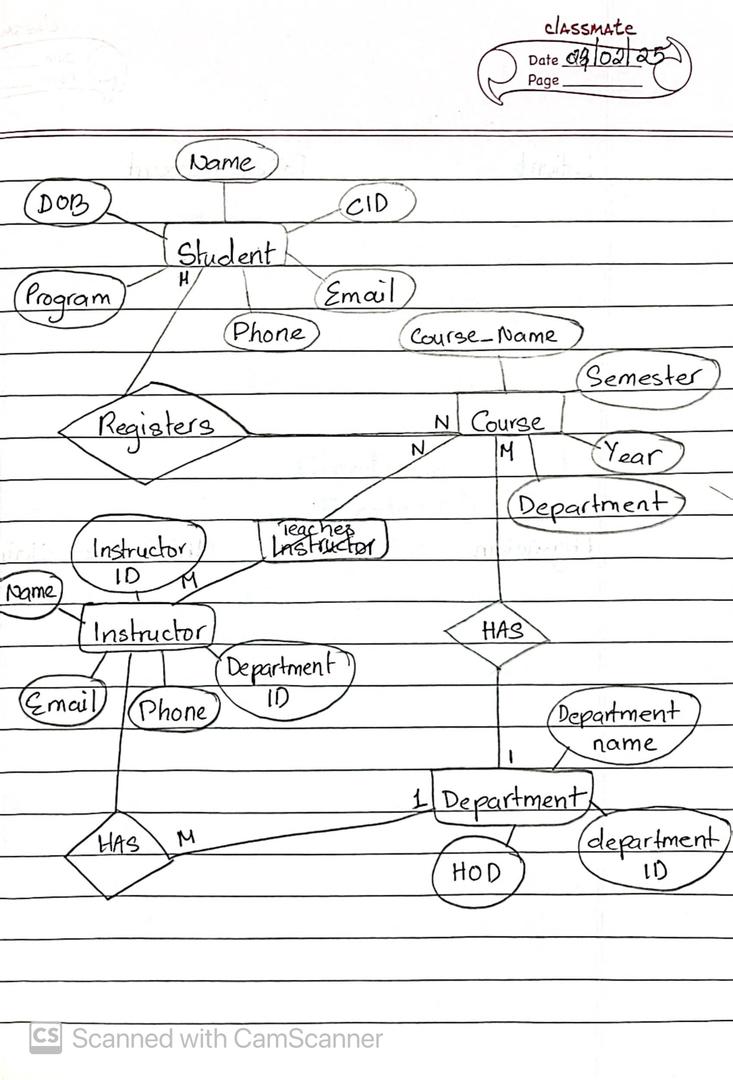 classmate
Date 03/02/25
Page
Name
DOB
CID
Student
M
Program
Email
Phone
Course_Name
Semester
Registers
N
Course
N
M
Year
Department
Teaches
Instructor
Instructor
ID
M
Name
HAS
Instructor
Department
ID
Email
Phone
Department
name
1
1
Department
HAS
M
department
ID
HOD
CS Scanned with CamScanner